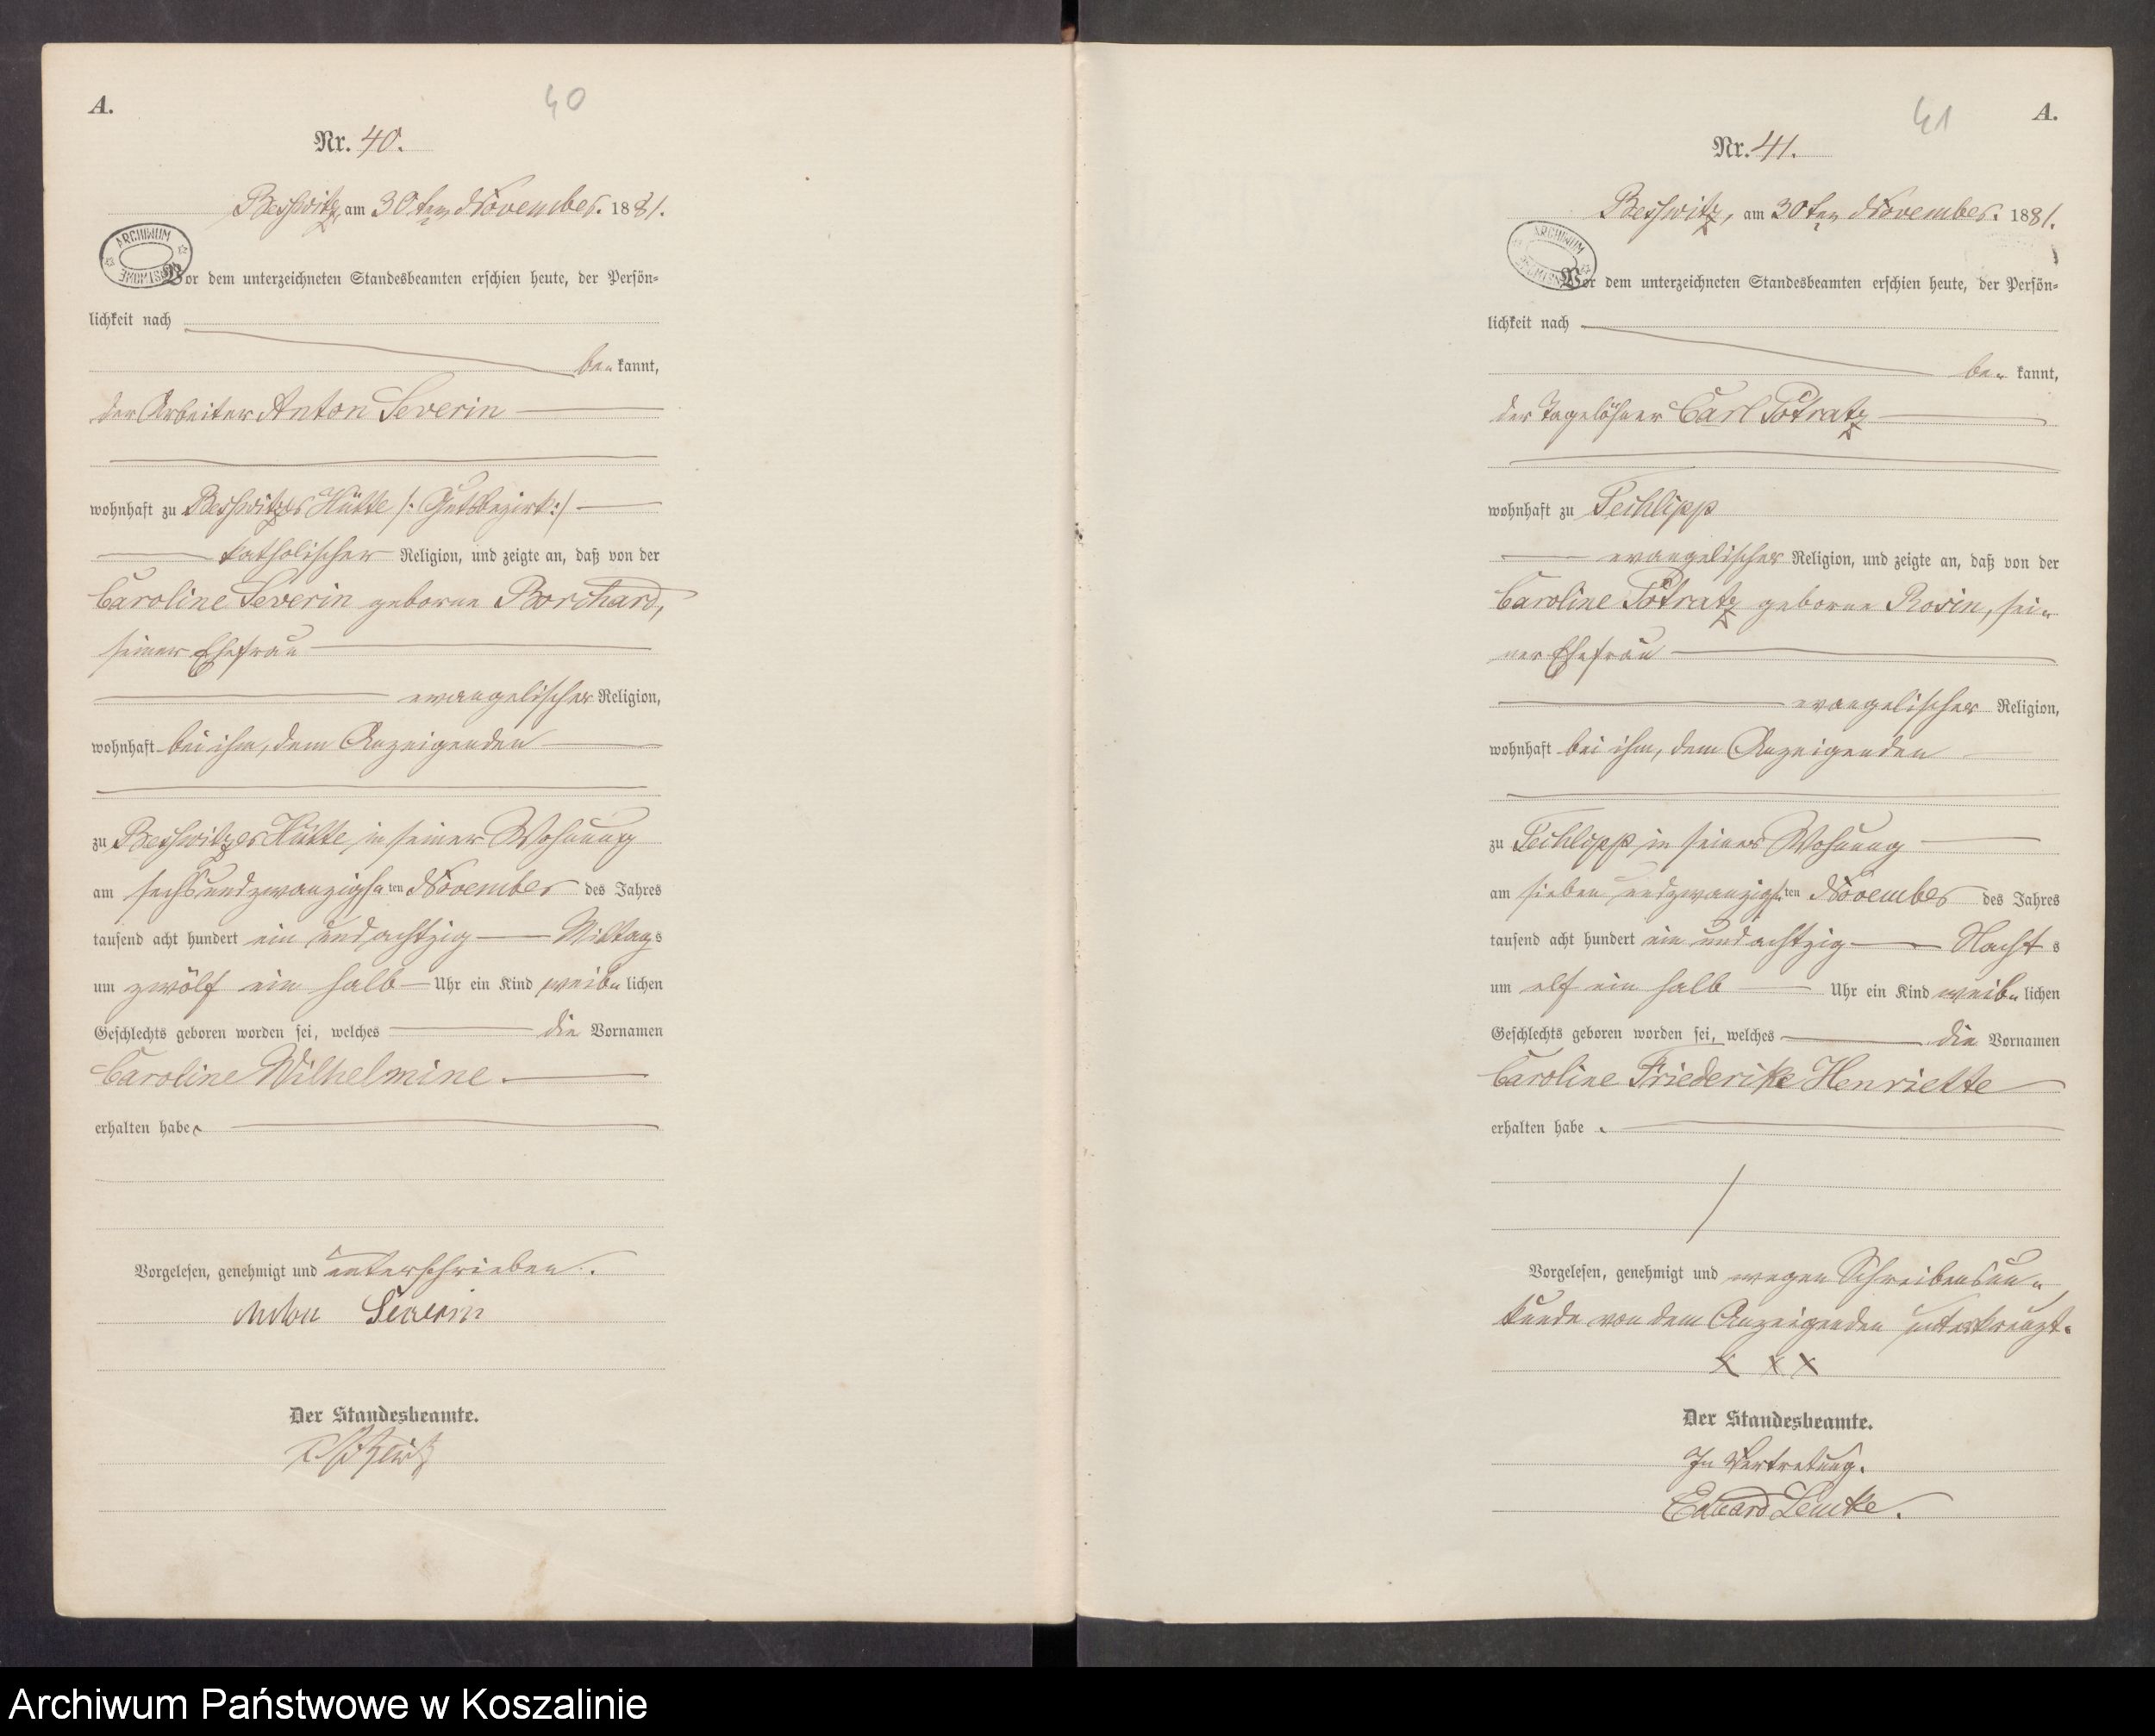 A.
40
Nr. 40.
Beßwitz, am 30ten November. 1881.
ARCHIWUM
Vor dem unterzeichneten Standesbeamten erschien heute, der Persön=
lichkeit nach
be= kannt,
der Arbeiter Anton Severin
wohnhaft zu Beßwitzer Hütte /: Gutsbezirk :/
katholischer Religion, und zeigte an, daß von der
Caroline Severin geborne Borchard,
seiner Ehefrau
evangelischer Religion,
wohnhaft bei ihm, dem Anzeigenden
zu Beßwitzer Hütte, in seiner Wohnung
am sechsundzwanzigsten November des Jahres
tausend acht hundert ein und achtzig Mittags
um zwölf ein halb Uhr ein Kind weib= lichen
Geschlechts geboren worden sei, welches die Vornamen
Caroline Wilhelmine.
erhalten habe.
Vorgelesen, genehmigt und unterschrieben.
Anton Severin
Der Standesbeamte.
41
A.
Nr. 41.
Beßwitz, am 30ten November. 1881.
ARCHIWUM
Vor dem unterzeichneten Standesbeamten erschien heute, der Persön=
lichkeit nach
be= kannt,
der Tagelöhner Carl Potratz
wohnhaft zu Techlipp
evangelischer Religion, und zeigte an, daß von der
Caroline Potratz geborne Rosin, sei=
ner Ehefrau
evangelischer Religion,
wohnhaft bei ihm, dem Anzeigenden
zu Techlipp in seiner Wohnung
am sieben undzwanzigsten November des Jahres
tausend acht hundert ein und achtzig Nacht s
um elf ein halb Uhr ein Kind weib= lichen
Geschlechts geboren worden sei, welches die Vornamen
Caroline Friederike Henriette
erhalten habe.
Vorgelesen, genehmigt und wegen Schreibensun=
kunde von dem Anzeigenden unterkreuzt.
x x x
Der Standesbeamte.
In Vertretung.
Eduard Lemke.
Archiwum Państwowe w Koszalinie